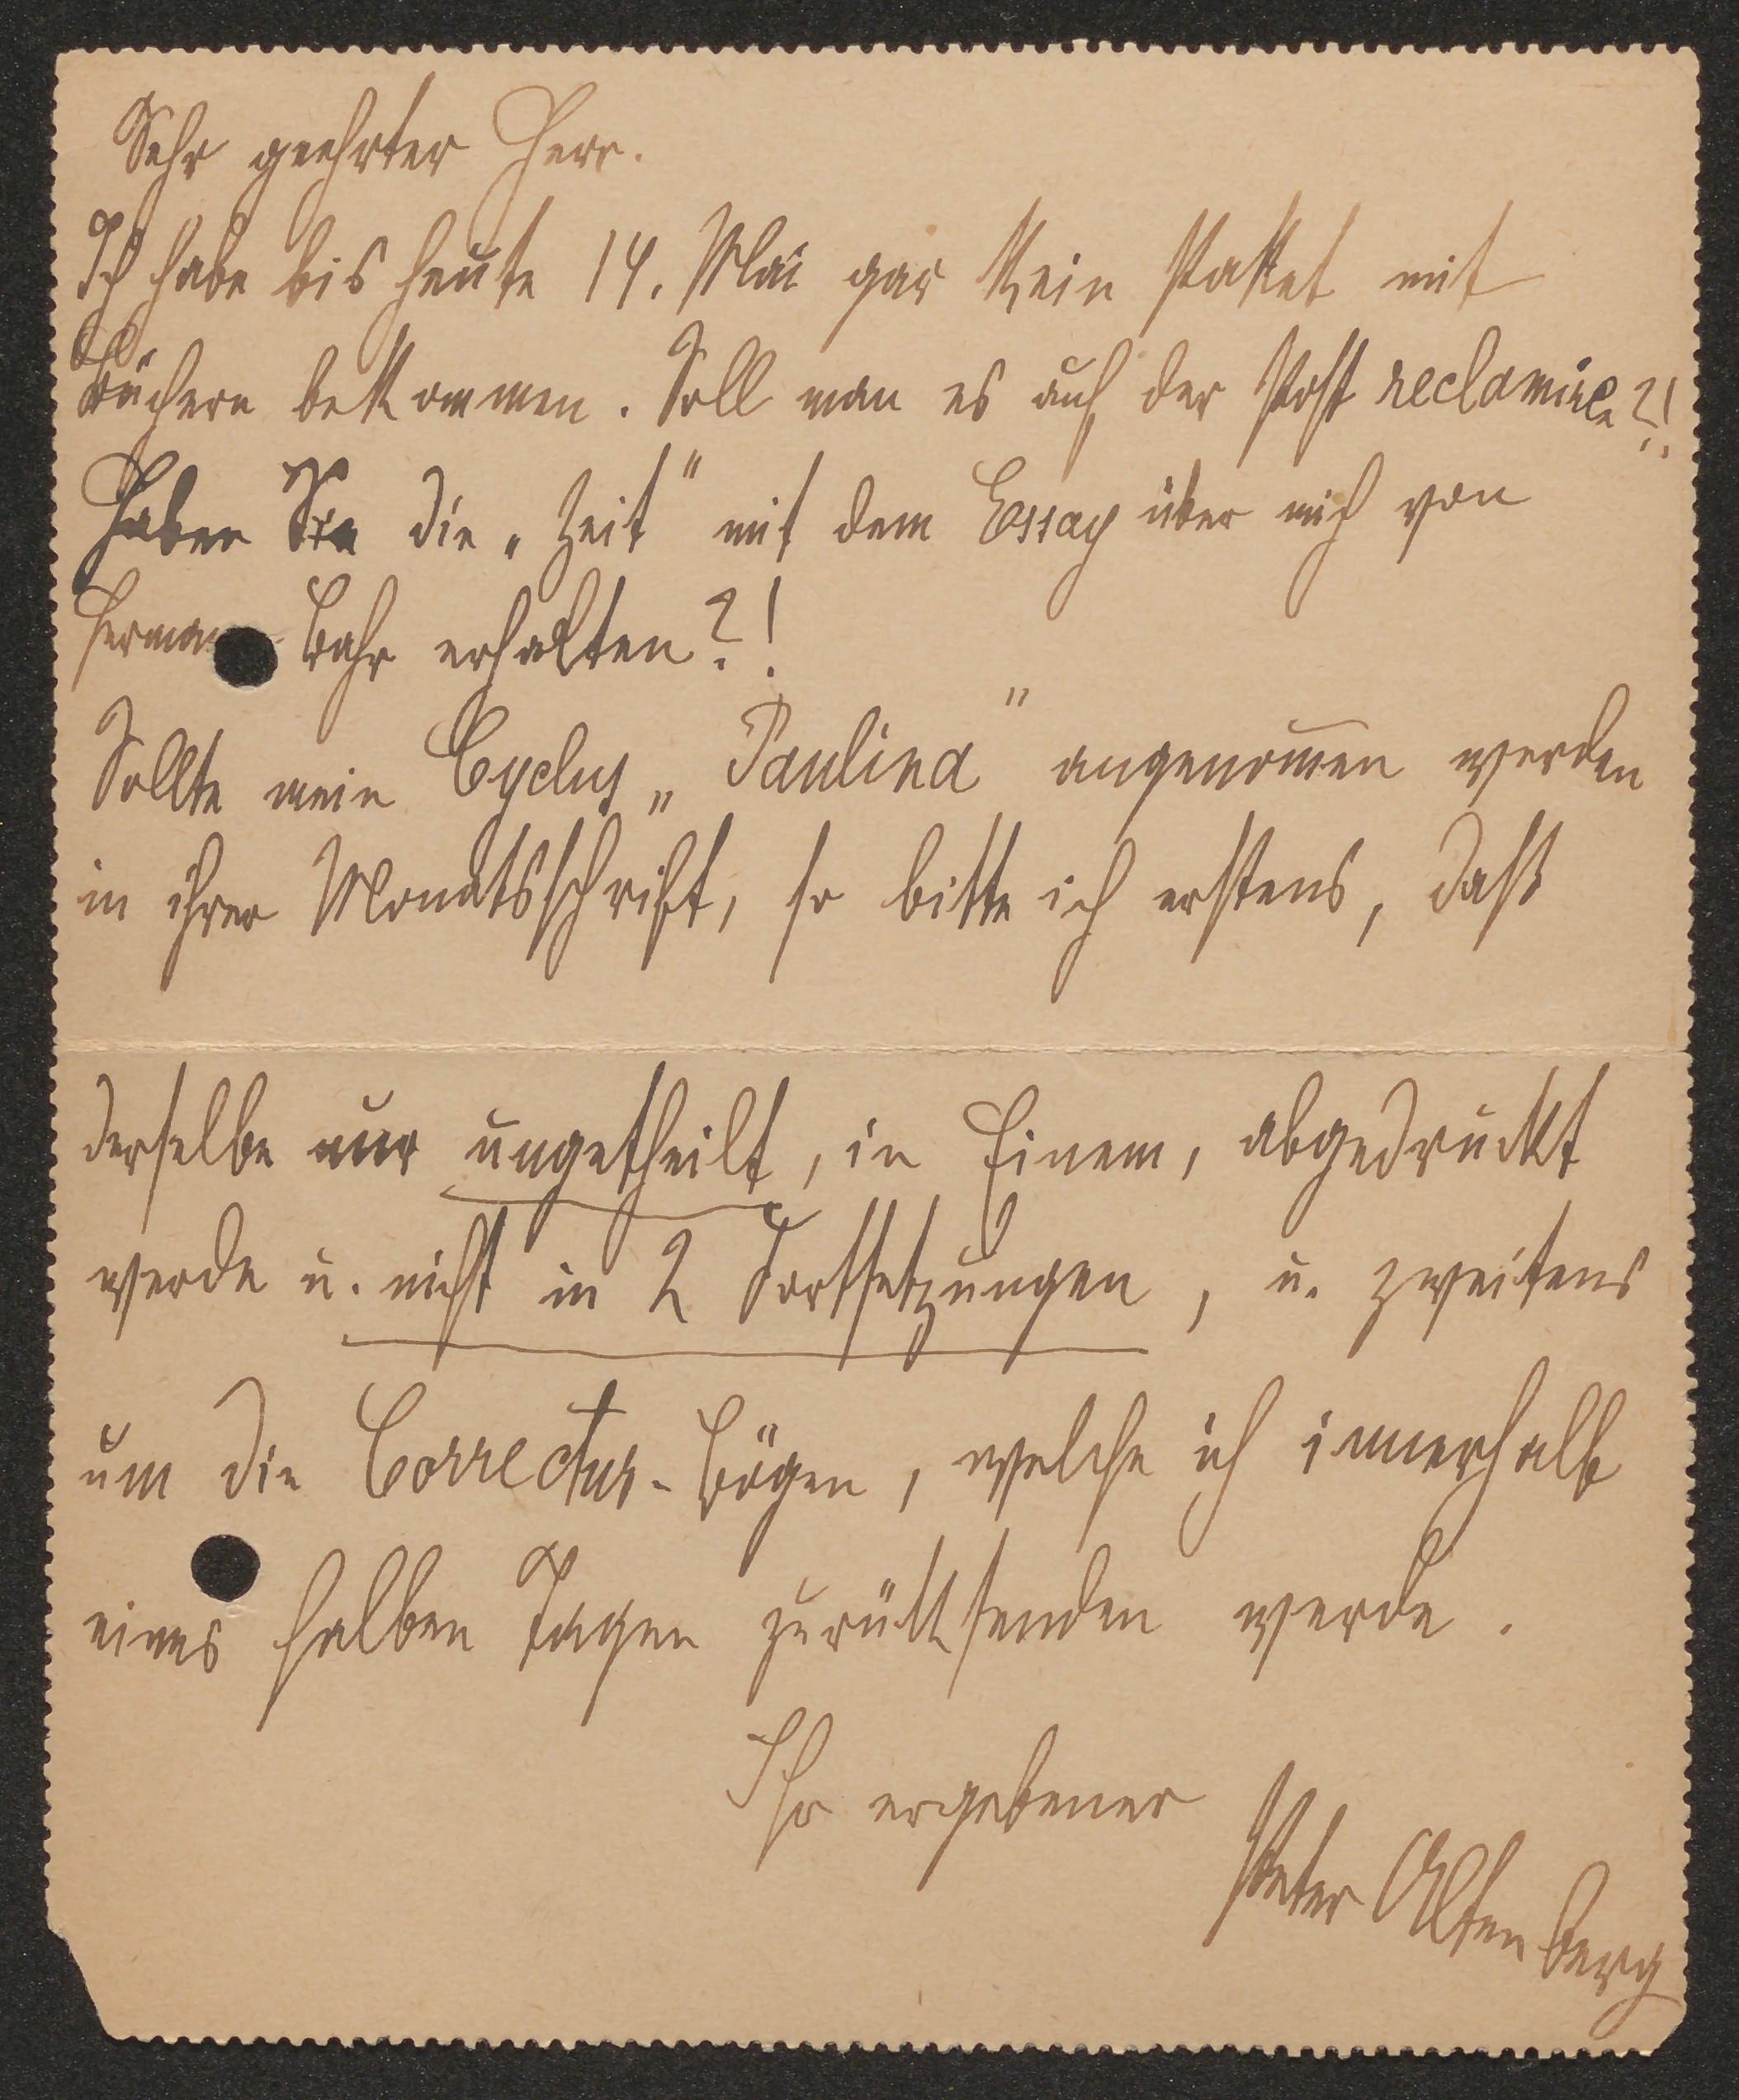 Sehr geehrter Herr.
Ich habe bis heute 14. Mai gar kein Paket mit
Büchern bekommen. Soll man es auf der Post reclamiren?!
Haben Sie die „Zeit" mit dem Essay über mich von
Hermann Bahr erhalten?!
Sollte mein Cyclus „Paulina" angenom̅en werden
in ihrer Monatsschrift, so bitte ich erstens, daß
derselbe nur ungetheilt, in Einem, abgedruckt
werde u. nicht in 2 Fortsetzungen, u. zweitens
um die Correctur-Bögen, welche ich innerhalb
eines halben Tages zurücksenden werde.
Ihr ergebener
Peter Altenberg